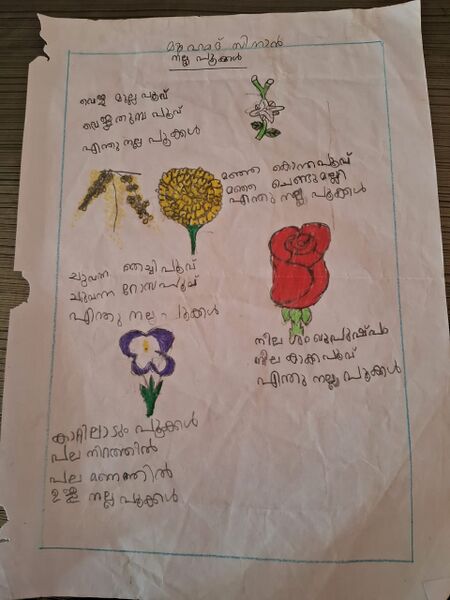 മുഹമ്മദ് സിനാൻ
നല്ല പൂക്കൾ
വെള്ള മുല്ല പൂവ്
വെള്ള തുമ്പ പൂവ്
എന്തു നല്ല പൂക്കൾ
മഞ്ഞ കൊന്നപൂവ്
മഞ്ഞ ചെണ്ടുമല്ലി
എന്തു നല്ല പൂക്കൾ
ചുവന്ന തെച്ചിപൂവ്
ചുവന്ന റോസപൂവ്
എന്തു നല്ല പൂക്കൾ
നീല ശംഖുപുഷ്പം
നീല കാക്കപൂവ്
എന്തു നല്ല പൂക്കൾ
കാറ്റിലാടും പൂക്കൾ
പല നിറത്തിൽ
പല മണത്തിൽ
ഉള്ള നല്ല പൂക്കൾ